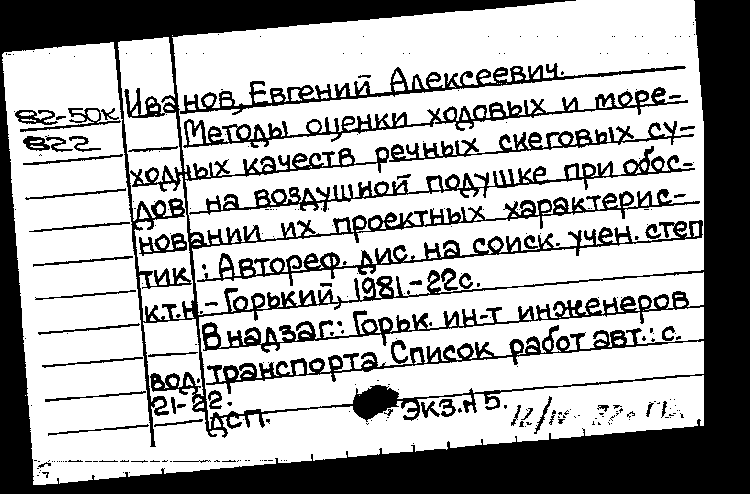 Иванов, Евгений Алексеевич.
82-50к Методы оценки ходовых и море-
822
ходных качеств речных скеговых су-
дов на воздушной подушке при обос-
новании их проектных характерис-
тик : Автореф. дис. на соиск. учен. степ
к.т.н. - Горький, 1981. - 22 с.
В надзаг.: Горьк. ин-т инженеров
вод. транспорта. Список работ авт.: с.
21-22.
ДСП. Экз. № 5.